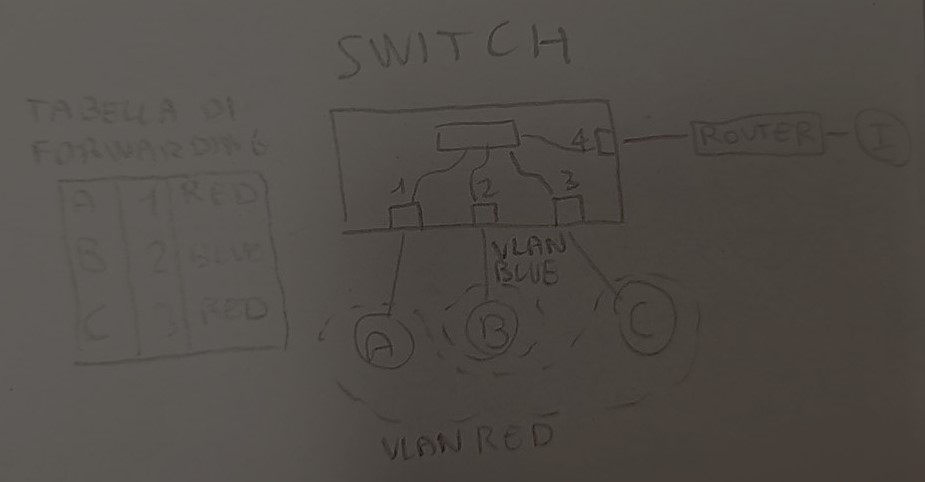 SWITCH
TABELLA DI
FORWARDING
A 1 RED
B 2 BLUE
C 3 RED
1 2 3 4
ROUTER I
VLAN
BLUE
A B C
VLAN RED